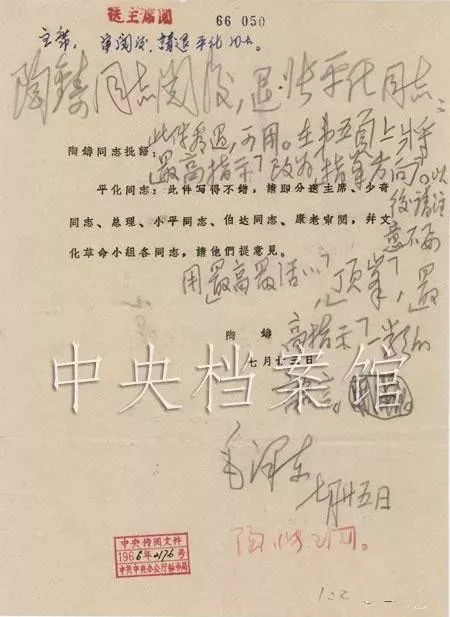 送主席閱
66 050
主席：审閱后，請退平化同志。
陶鑄同志阅后，退张平化同志：
此件看过，可用。在第五頁上将
陶鑄同志批語：
「最高指示」改为「指导方向」。以
平化同志：此件写得不错，請即分送主席、少奇
后请注
同志、总理、小平同志、伯达同志、康老审閱，幷文
意不要
化革命小組各同志，請他們提意見。
用「最高最活…」，「顶峯」，「最
陶 鑄
高指示」一类的
七月廿三日
语言。
中央档案馆
毛泽东
七月廿五日
中央传閱文件
1966年2176号
中共中央办公厅秘书局
122